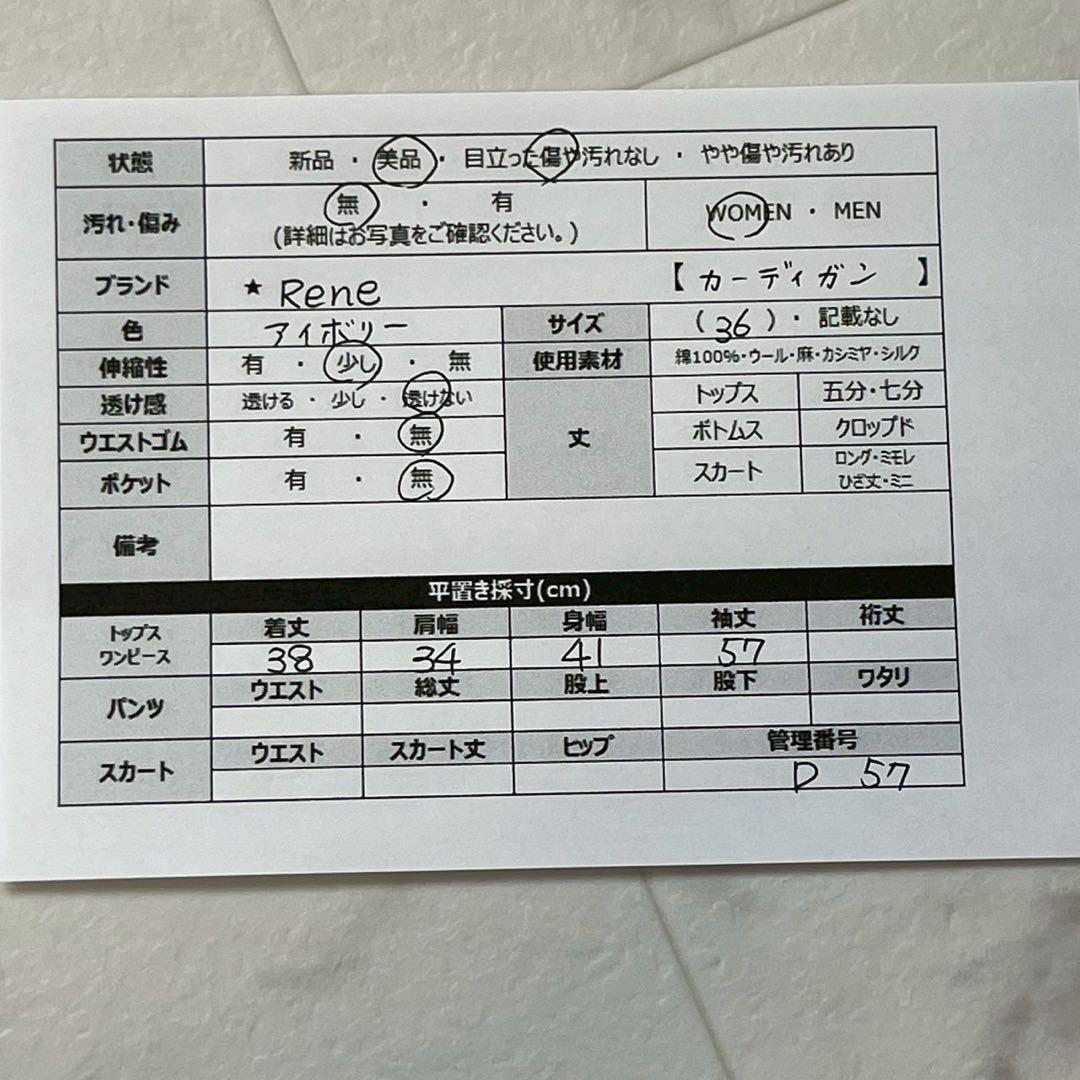 状態 新品 ・ 美品 ・ 目立った傷や汚れなし ・ やや傷や汚れあり
汚れ・傷み 無 ・ 有 WOMEN ・ MEN
(詳細はお写真をご確認ください。)
ブランド ★ Rene 【 カーディガン 】
色 アイボリー サイズ ( 36 )・ 記載なし
伸縮性 有 ・ 少し ・ 無 使用素材 綿100%・ウール・麻・カシミヤ・シルク
透け感 透ける ・ 少し ・ 透けない 丈 トップス 五分・七分
ウエストゴム 有 ・ 無 ボトムス クロップド
ポケット 有 ・ 無 スカート ロング・ミモレ
ひざ丈・ミニ
備考
平置き採寸(cm)
トップス
ワンピース 着丈 肩幅 身幅 袖丈 裄丈
38 34 41 57
パンツ ウエスト 総丈 股上 股下 ワタリ
スカート ウエスト スカート丈 ヒップ 管理番号
D 57